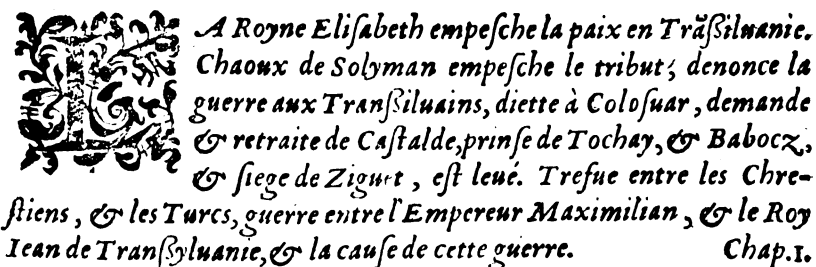 LA Royne Eliſabeth empeſche la paix en Trãſſiluanie.
Chaoux de Solyman empeſche le tribut; denonce la
guerre aux Tranſſiluains, diette à Coloſuar, demande
& retraite de Caſtalde, prinſe de Tochay, & Babocz,
& ſiege de Ziguet, eſt leué. Trefue entre les Chre-
ſtiens, & les Turcs, guerre entre l'Empereur Maximilian, & le Roy
Iean de Tranſſyluanie, & la cauſe de cette guerre. Chap.I.